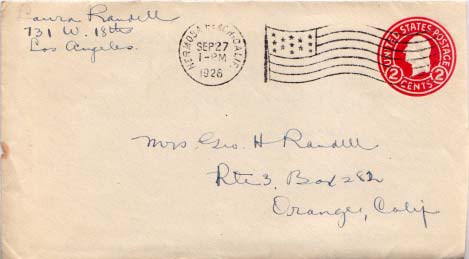 Laura Randell
731 W. 18th
Los Angeles.
HERMOSA BEACH, CALIF.
SEP 27
1-PM
1926
UNITED STATES POSTAGE
2 CENTS 2
Mrs. Geo. H Randell
Rte 3, Box 282
Orange, Calif